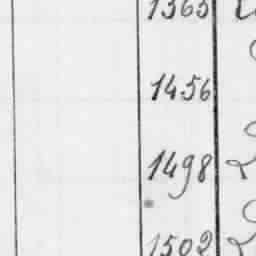 1365
1456
1498
1502